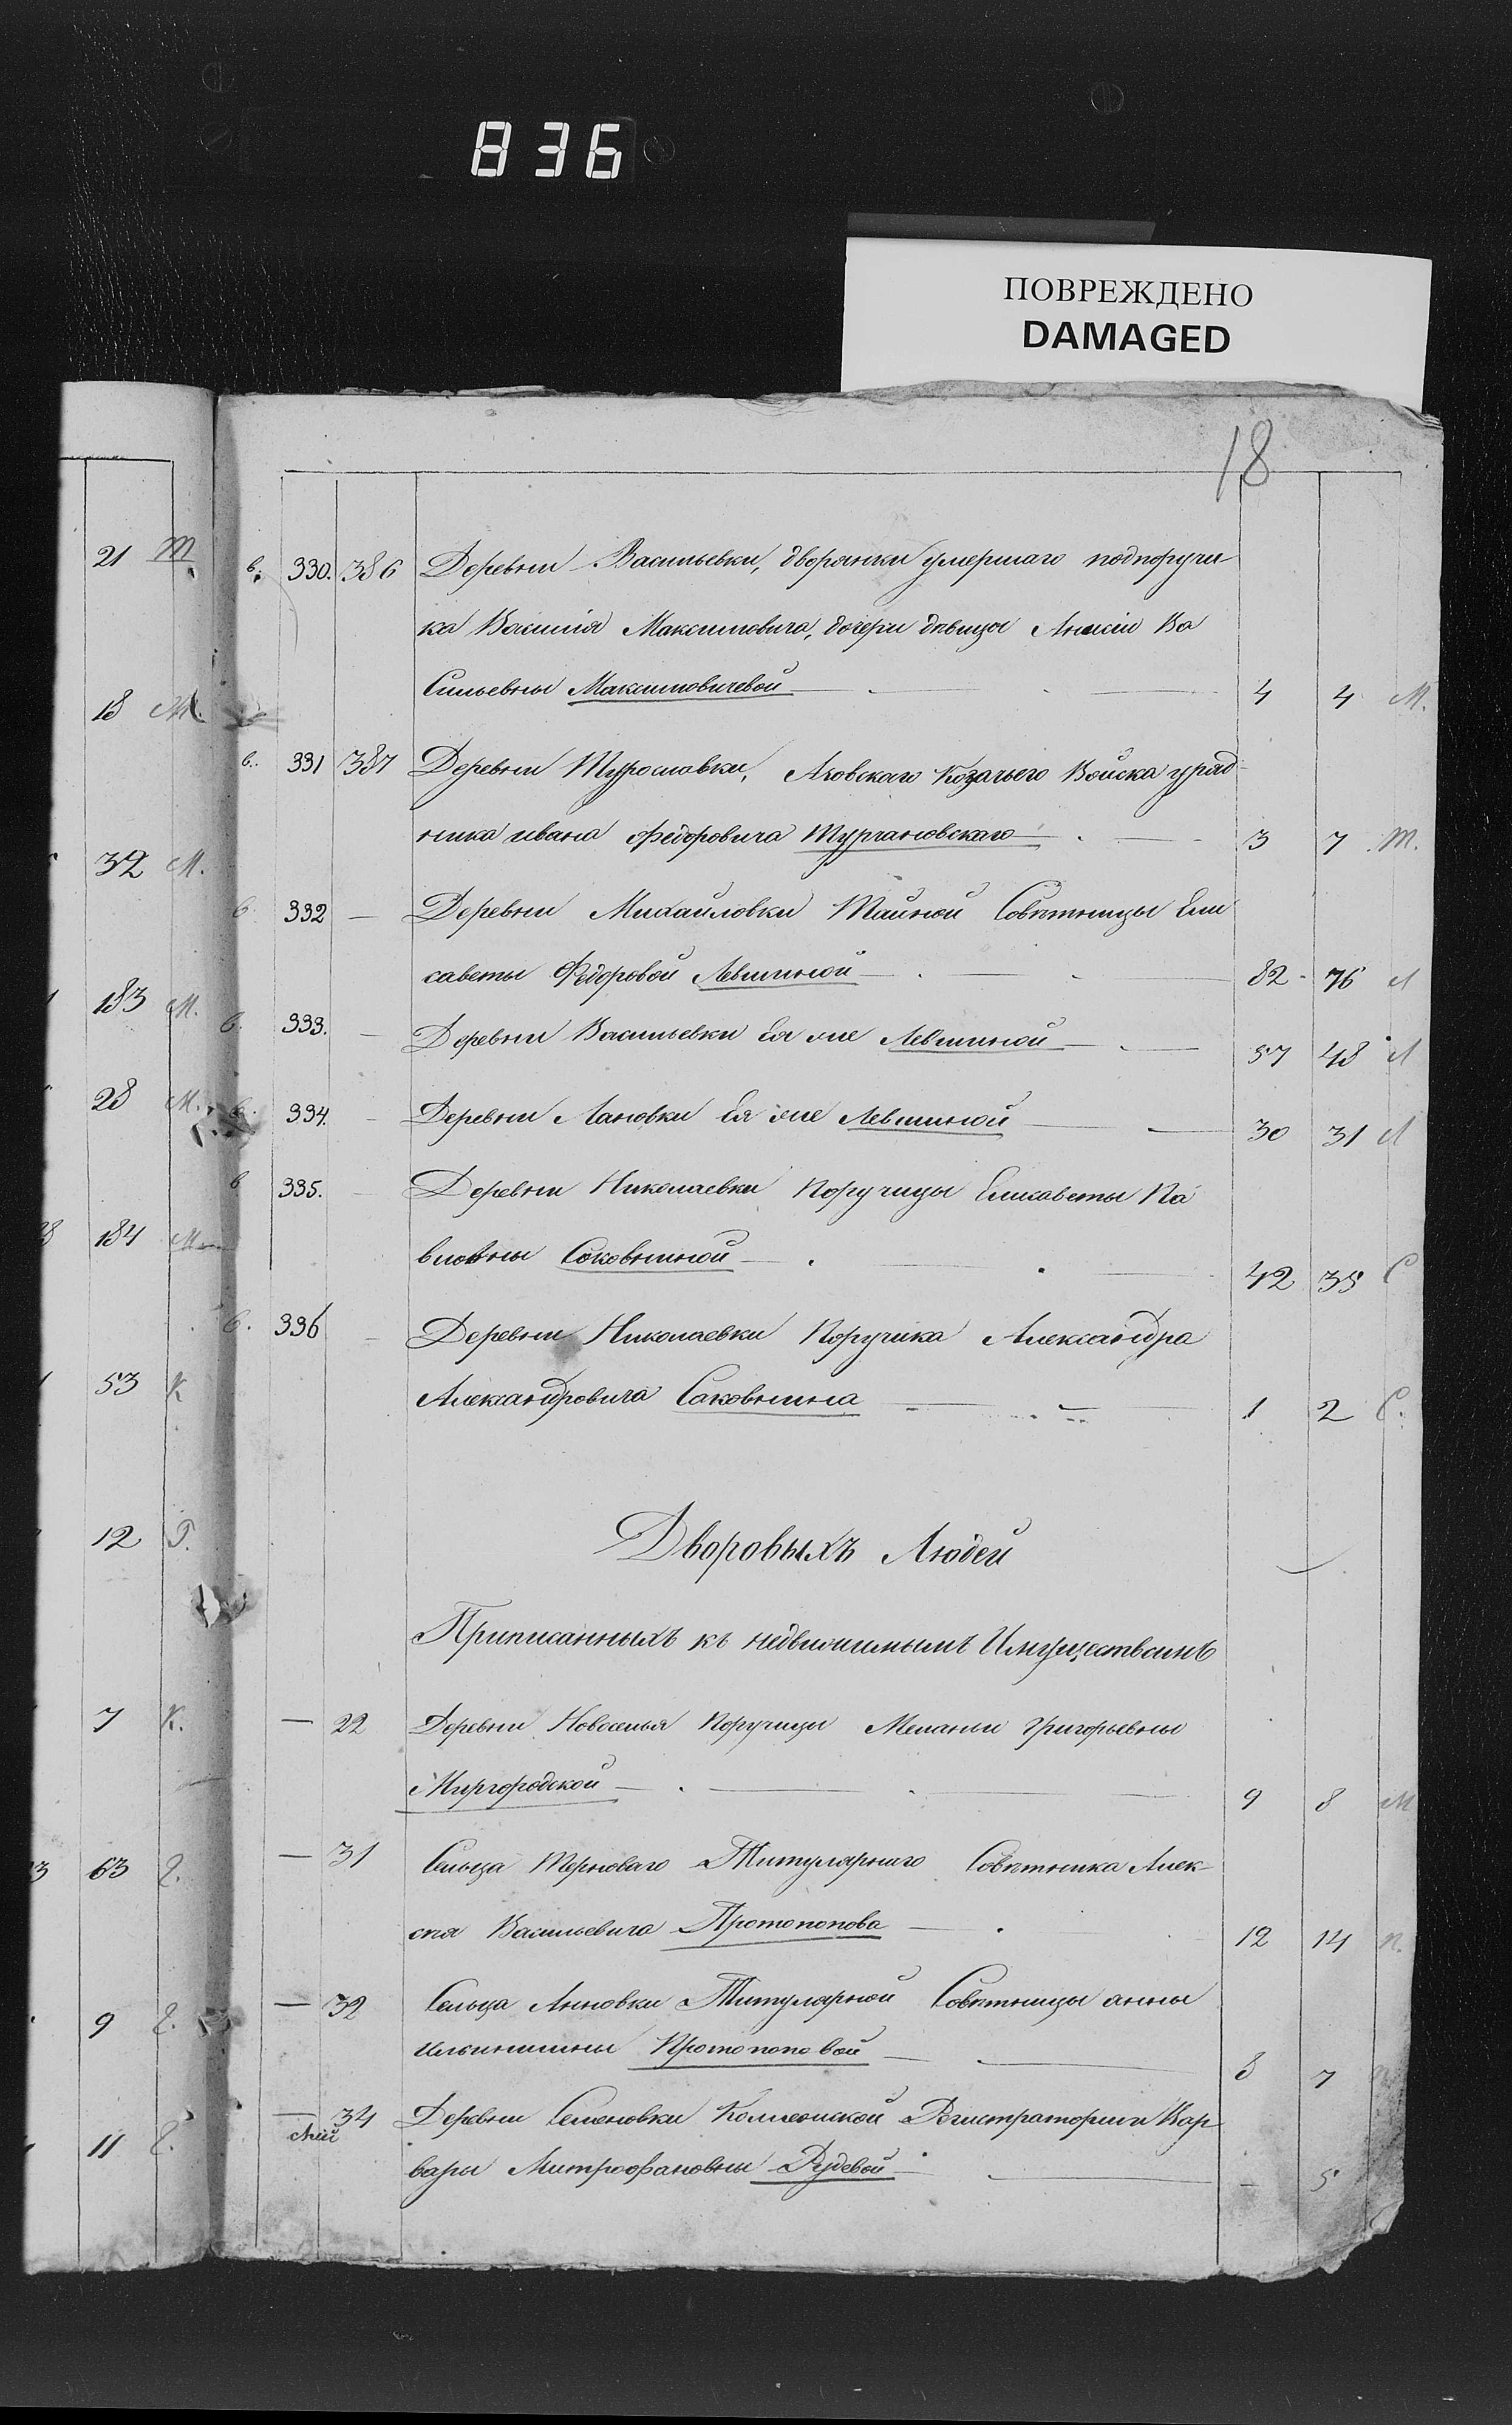 836
ПОВРЕЖДЕНО
DAMAGED
18
21 М.
18 М.
32 М.
183 М.
28 М.
184 М
53 К
12
7 К.
63
9
11
в. 330. 386 Деревни Васильевки, дворянки умершаго подпоручи-
ка Василія Максимовича, дочери дѣвицы Анисіи Ва
сильевны Максимовичевой 4 4 М.
в. 331 387 Деревни Турославки, Азовскаго Козачьего Войска уряд-
ника ивана Федоровича Турчановскаго 3 7 Т.
в. 332 — Деревни Михайловки Тайной Совѣтницы Ели
саветы Федоровой Левшиной 82 76 Л
в. 333. — Деревни Васильевки Ея же Левшиной 57 48 Л
в. 334. — Деревни Лановки Ея же Левшиной 30 31 Л
в 335. — Деревни Николаевки Поручицы Елисаветы Па
вловны Соковниной 42 35 С
в. 336 — Деревни Николаевки Поручика Александра
Александровича Саковнина 1 2 С.
Дворовыхъ Людей
Приписанныхъ къ недвижимымъ Имуществамъ
— 22 Деревни Новоселья Поручицы Меланьи Григорьевны
Миргородской 9 8 М
— 31 Сельца Терноваго Титулярнаго Совѣтника Алек-
сѣя Васильевича Протопопова 12 14 П.
— 32 Сельца Анновки Титулярной Совѣтницы анны
ильинишны Протопоповой 8 7
— 34 Деревни Семеновки Коллежской Регистраторши Вар
вары Митрофановны Рудевой — 5